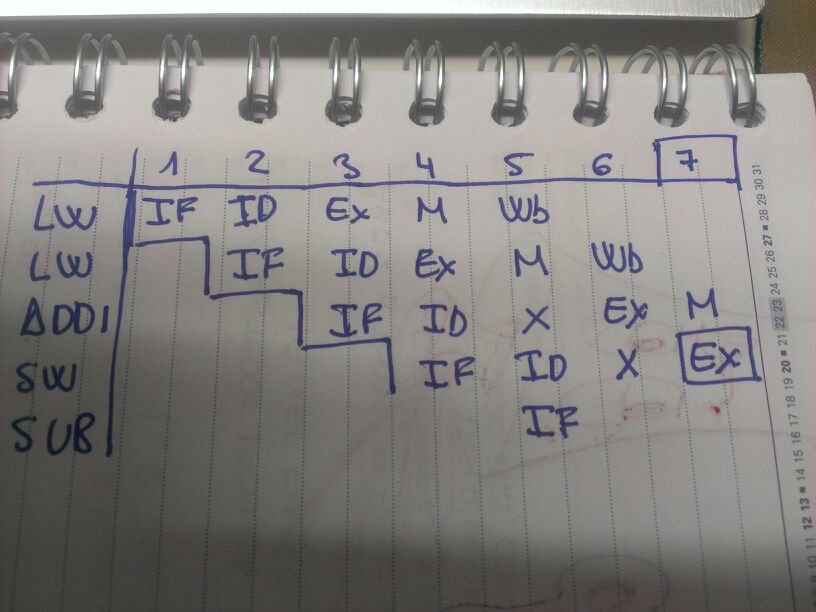 1 2 3 4 5 6 7
LW IF ID Ex M Wb
LW IF ID Ex M Wb
ADDI IF ID X Ex M
SW IF ID X Ex
SUB IF
9 10 11 12 13 ■ 14 15 16 17 18 19 20 ■ 21 22 23 24 25 26 27 ■ 28 29 30 31